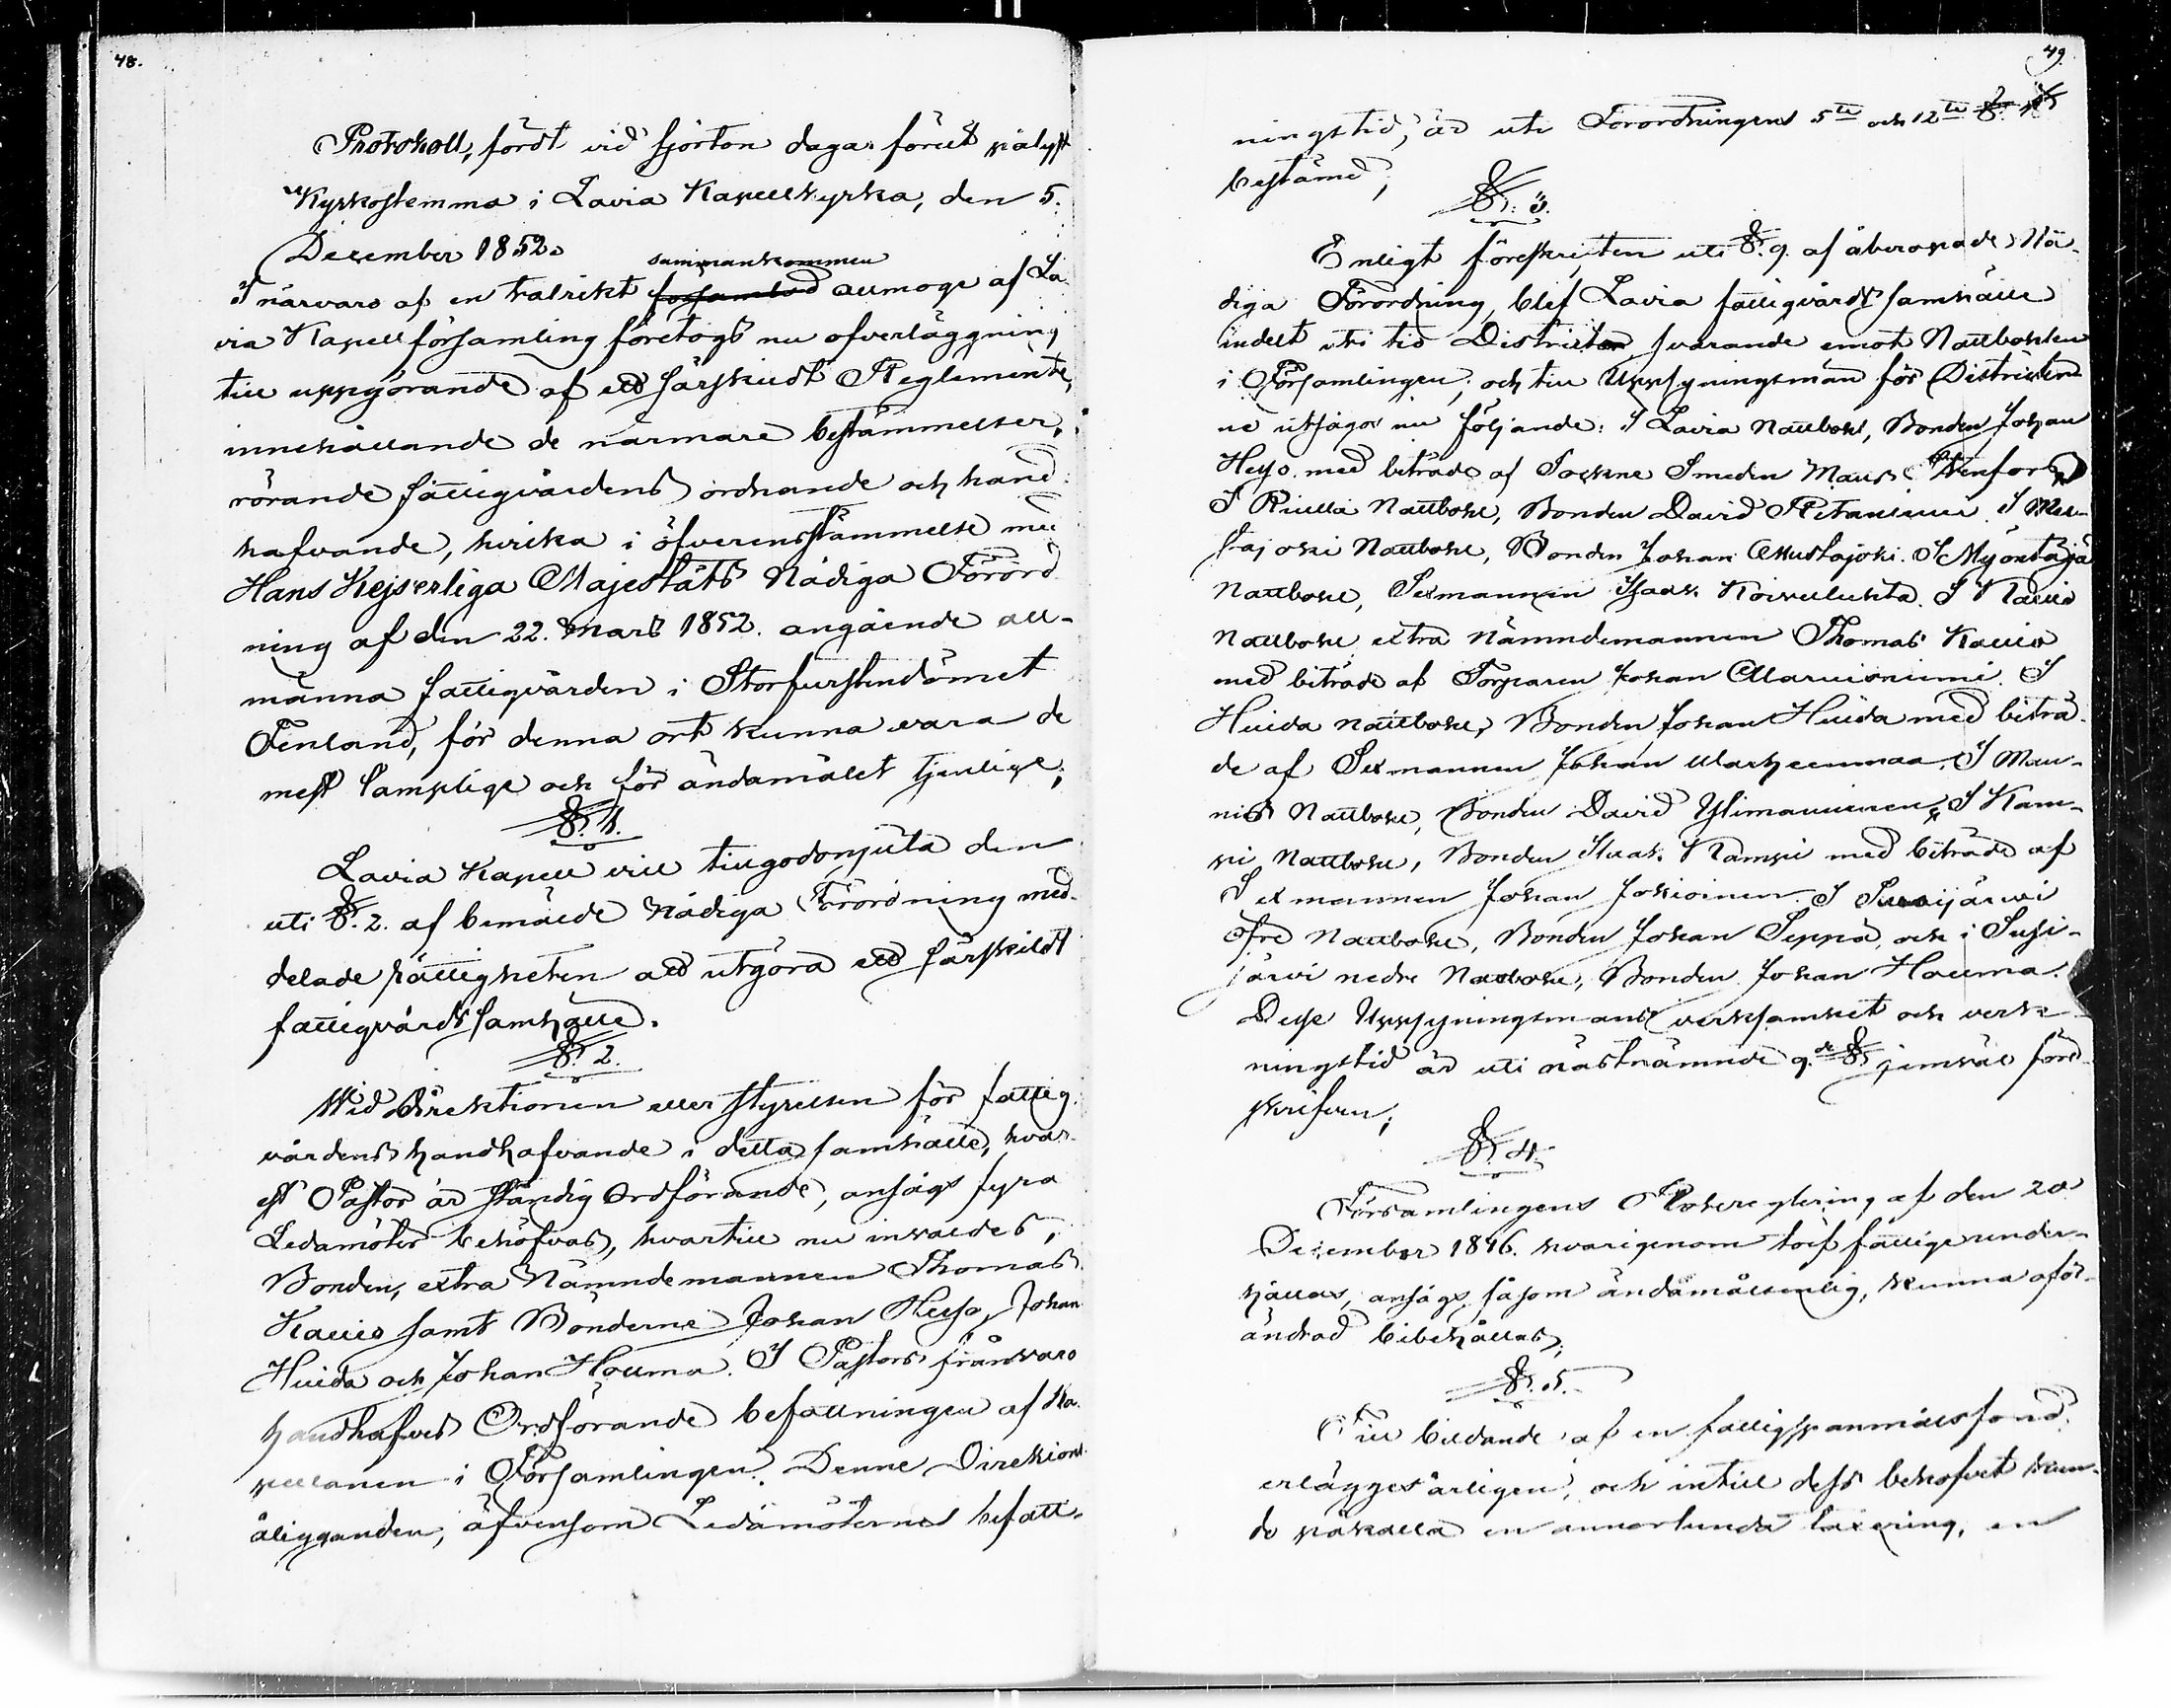 48.
Protokoll, fördt vid fjorton dagar förut pålyst
Kyrkostemma i Lavia Kapellkyrka, den 5.
December 1852.
sammankommen
I närvaro af en talrikt församlad allmoge af La-
via Kapellförsamling företogs nu öfverläggning
till uppgörande af ett särskildt Reglemente,
innehållande de närmare bestämmelser,
rörande fattigvårdens ordnande och hand-
hafvande, hvilka i öfverensstämmelse med
Hans Kejserliga Majestäts Nådiga Förord-
ning af den 22. Mars 1852. angående all-
männa fattigvården i Storfurstendömet
Finland, för denna ort kunna vara de
mest lämplige och för ändamålet tjenlige;
§. 1.
Lavia Kapell vill tillgodonjuta den
uti §. 2. af bemälde Nådiga Förordning med-
delade rättigheten att utgöra ett särskildt
fattigvårds samhälle.
§. 2.
Wid Direktionen eller styrelsen för fattig-
vårdens handhafvande i detta samhälle, hvar-
est Pastor är ständig Ordförande, ansågs fyra
Ledamöter behöfvas, hvartill nu invaldes,
Bonden, extra Nämndemannen Thomas
Kallio samt Bönderne Johan Heiso, Johan
Huida och Johan Houma. I Pastors frånvaro
handhafves Ordförande befattningen af Ka-
pellanen i Församlingen. Denne Direktions
åligganden, äfvensom Ledamöternes befatt-
49.
ningstid, är uti Förordningens 5te och 12te §§
bestämd;
§. 3.
Enligt föreskriften uti §. 9. af åberopade Nå-
diga Förordning, blef Lavia fattigvårds samhälle
indelt uti tio Distrikter svarande emot Nattboklen
i Församlingen; och till Uppsyningsmän för Distrikter-
ne utsågos nu följande: I Lavia Nattbohl, Bonden Johan
Heiso med biträde af Sockne Smeden Mats Stenfors
I Riiela Nattbohl, Bonden David Retaniemi. I Mus-
tajoki Nattbohl, Bonden Johan Mustajoki. I Myöntäjä
Nattbohl, Sexmannen Isaak Koivulukta. I Kallio
Nattbohl, extra Nämndemannen Thomas Kallio
med biträde af Torparen Johan Marttioniemi. I
Huida Nattbohl, Bonden Johan Huida med biträ-
de af Sexmannen Johan Marjeenmaa. I Man-
nis Nattbohl, Bonden David Ylimanninen, I Kam-
pi Nattbohl, Bonden Isaak Kamppi med biträde af
Sexmannen Johan Jokioinen. I Susijärvi
öfre Nattbohl, Bonden Johan Seppä, och i Susi-
järvi nedre Nattbohl, Bonden Johan Houma.
Desse Uppsyningsmäns verksamhet och verk-
ningstid är uti nästnämnde 9.de § jemväl före-
skrifven;
§. 4.
Församlingens Rotereglering af den 20
December 1846. hvarigenom tolf fattige under-
hållas, ansågs såsom ändamålsenlig, kunna oför-
ändrad bibehållas;
§. 5.
Till bildande af en fattigspanmålsfond
erlägges årligen, och intill dess behofvet kun-
de påkalla en annorlunda taxering, en